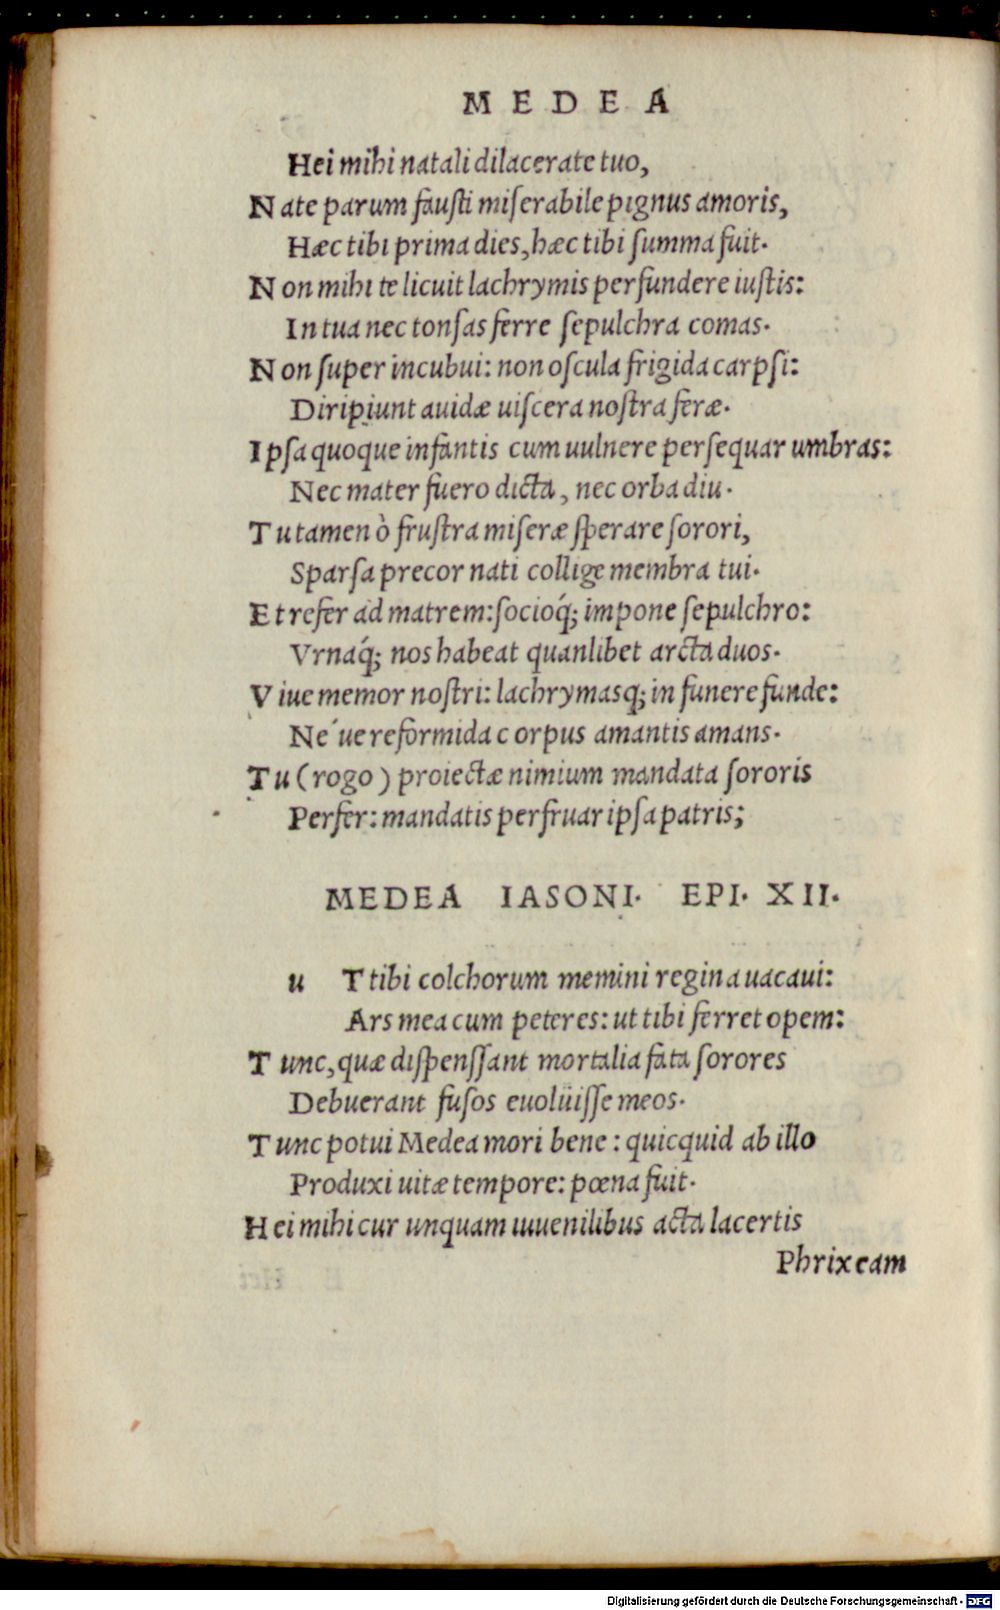 MEDEA
Hei mihi natali dilacerate tuo,
Nate parum fausti miserabile pignus amoris,
Hæc tibi prima dies, hæc tibi summa fuit.
Non mihi te licuit lachrymis perfundere iustis:
In tua nec tonsas ferre sepulchra comas.
Non super incubui: non oscula frigida carpsi:
Diripiunt auidæ uiscera nostra feræ.
Ipsa quoque infantis cum uulnere persequar umbras:
Nec mater fuero dicta, nec orba diu.
Tu tamen ò frustra miseræ sperare sorori,
Sparsa precor nati collige membra tui.
Et refer ad matrem: socioq́; impone sepulchro:
Vrnaq́; nos habeat quanlibet arcta duos.
Viue memor nostri: lachrymasq; in funere funde:
Né ue reformida corpus amantis amans.
Tu (rogo) proiectæ nimium mandata sororis
Perfer: mandatis perfruar ipsa patris;
MEDEA IASONI. EPI. XII.
u Ttibi colchorum memini regina uacaui:
Ars mea cum peteres: ut tibi ferret opem:
Tunc, quæ dispenssant mortalia fata sorores
Debuerant fusos euolüisse meos.
Tunc potui Medea mori bene: quicquid ab illo
Produxi uitæ tempore: pœna fuit.
Hei mihi cur unquam iuuenilibus acta lacertis
Phrixeam
Digitalisierung gefördert durch die Deutsche Forschungsgemeinschaft - DFG